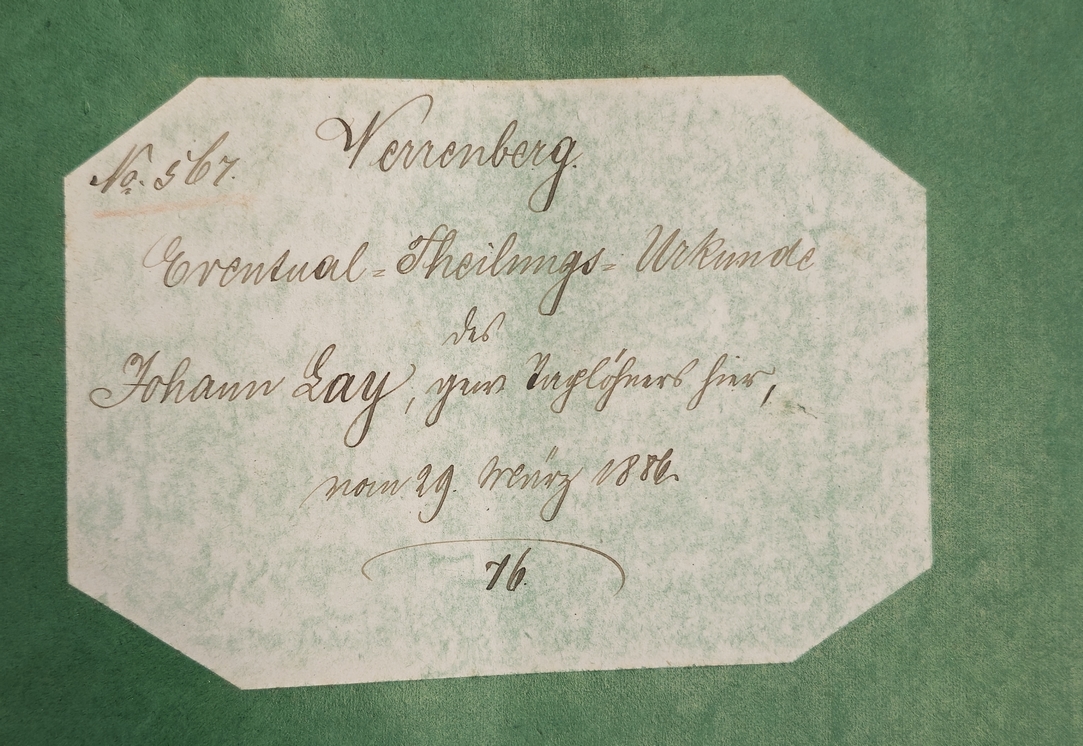 No. 567. Verrenberg.
Eventual-Theilungs-Urkunde
des
Johann Lay, gew Taglöhners hier,
vom 29. März 1886.
76.